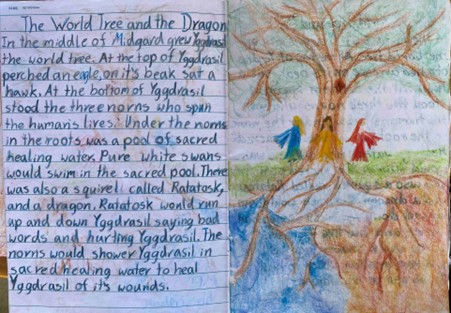 The World Tree and the Dragon
In the middle of Midgard grew Yggdrasil
the world tree. At the top of Yggdrasil
perched an eagle, on it's beak sat a
hawk. At the bottom of Yggdrasil
stood the three norns who span
the humans lives. Under the norns
in the roots was a pool of sacred
healing water. Pure white swans
would swim in the sacred pool. There
was also a squirel called Ratatosk,
and a dragon. Ratatosk would run
up and down Yggdrasil saying bad
words and hurting Yggdrasil. The
norns would shower Yggdrasil in
sacred healing water to heal
Yggdrasil of it's wounds.